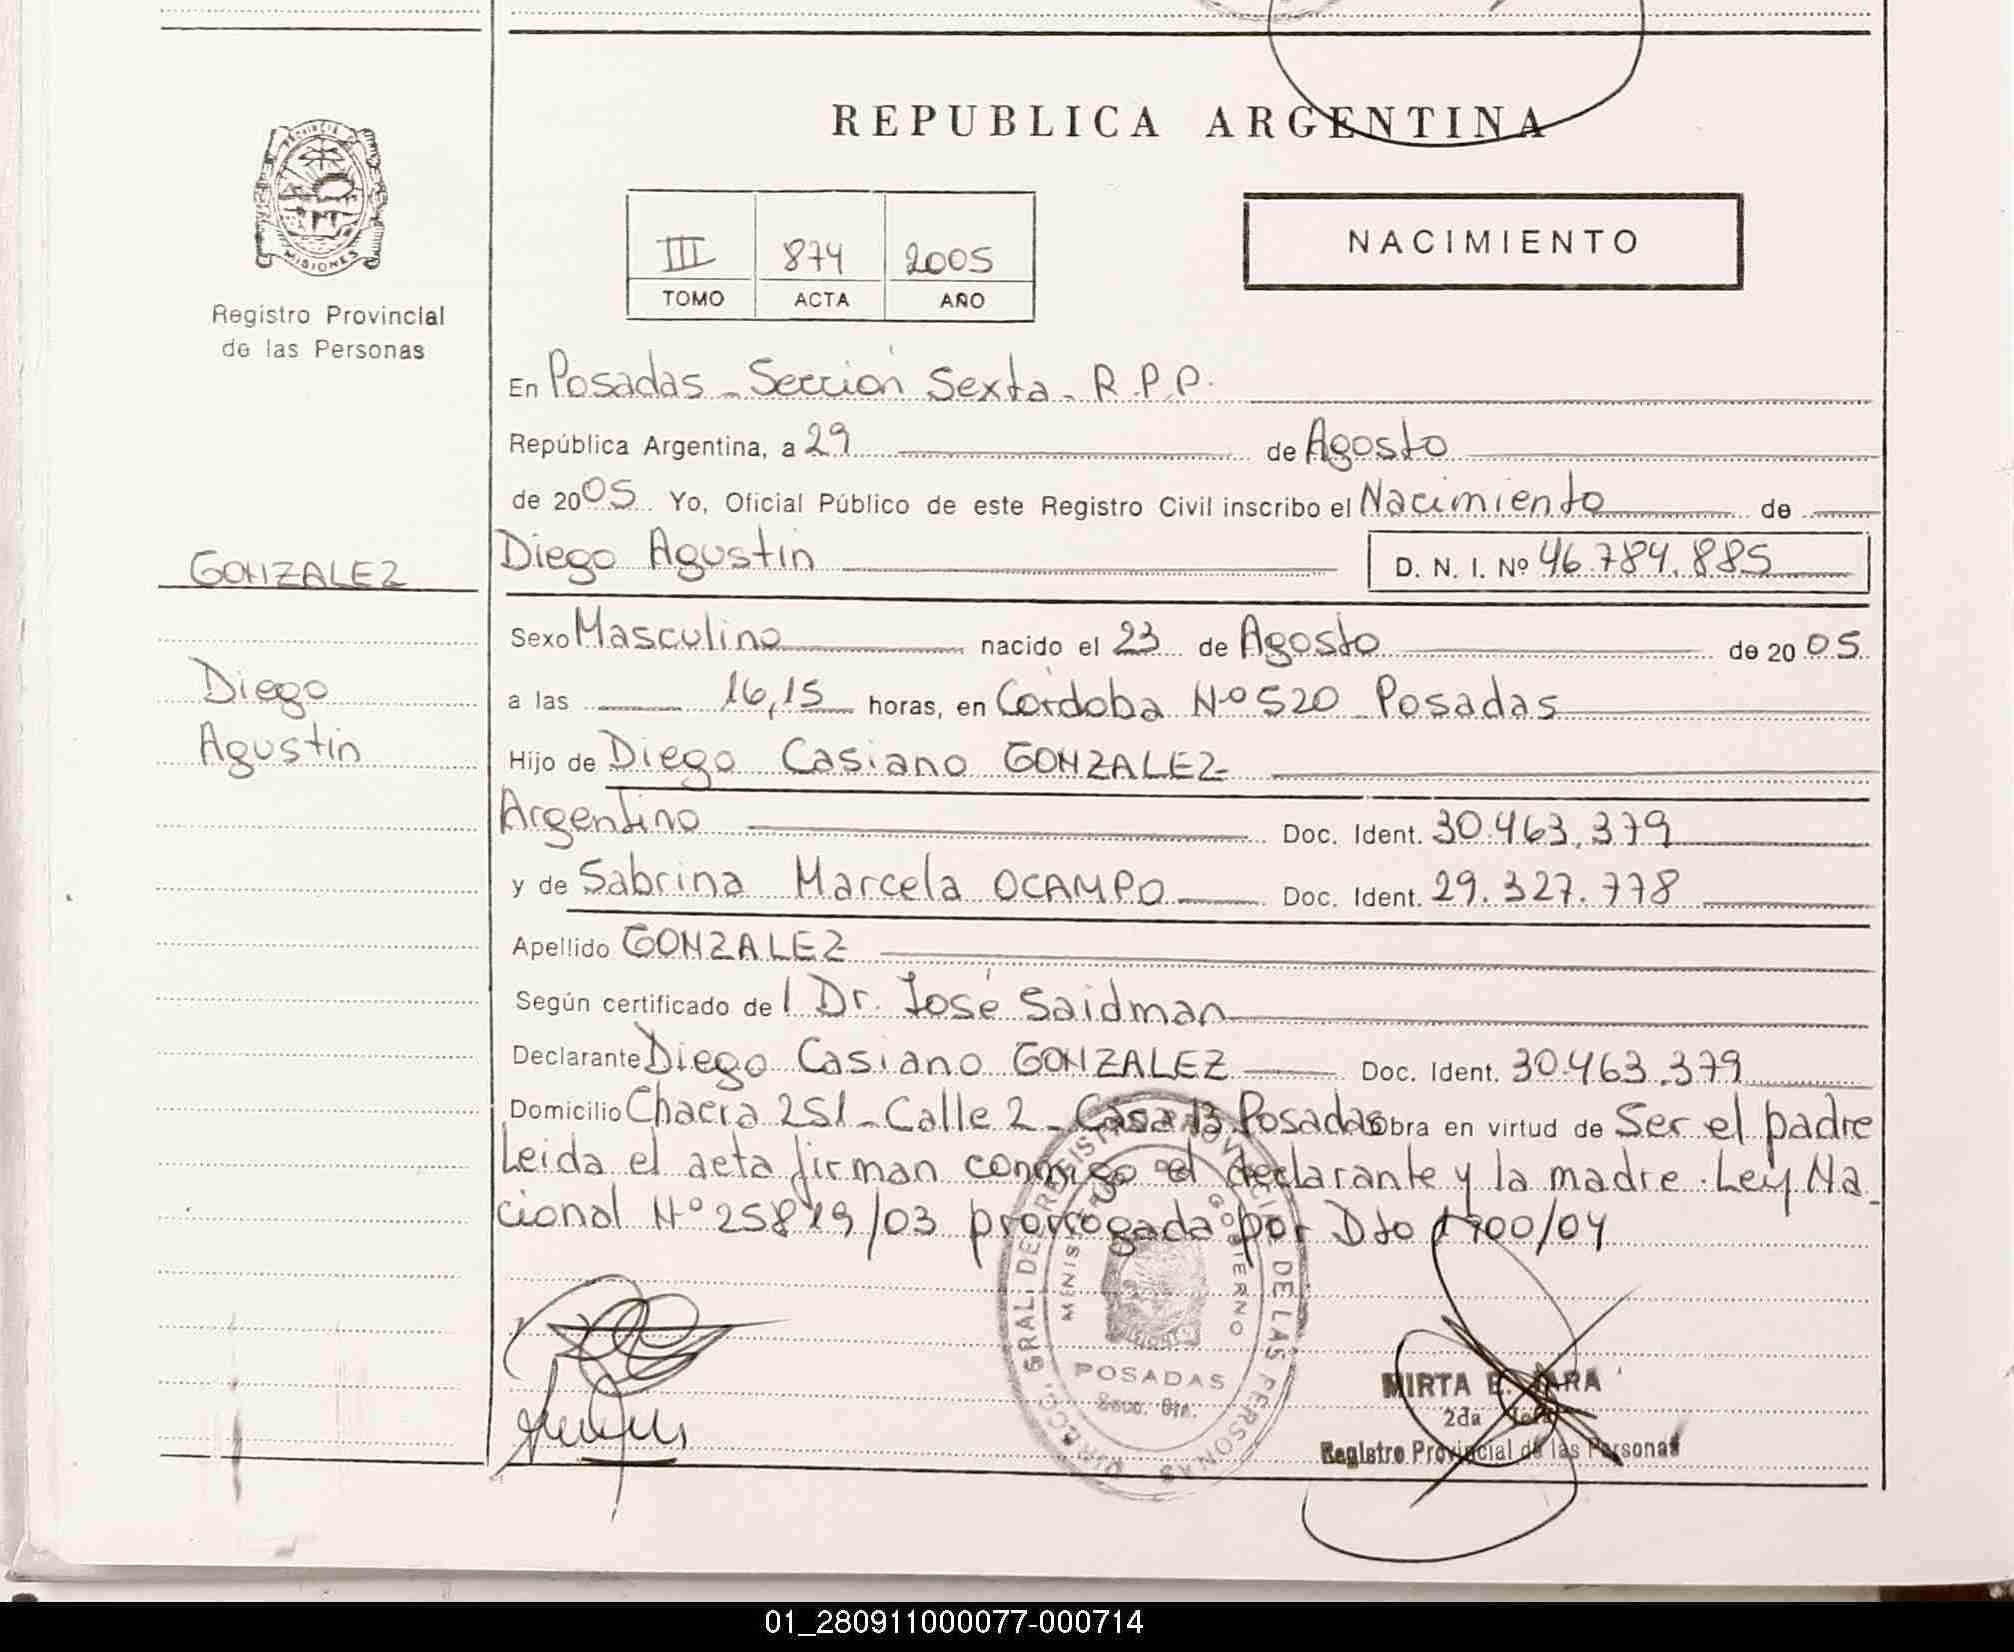 REPUBLICA ARGENTINA
PROVINCIA DE MISIONES
Registro Provincial
de las Personas
III 874 2005
TOMO ACTA AÑO
NACIMIENTO
En Posadas - Sección Sexta - R.P.P.
República Argentina, a 29 de Agosto
de 2005 Yo, Oficial Público de este Registro Civil inscribo el Nacimiento de
GONZALEZ
Diego Agustin D. N. I. Nº 46.784.885
Sexo Masculino nacido el 23 de Agosto de 2005
Diego
Agustin
a las 16,15 horas, en Córdoba Nº 520 Posadas
Hijo de Diego Casiano GONZALEZ
Argentino Doc. Ident. 30.463.379
y de Sabrina Marcela OCAMPO Doc. Ident. 29.327.778
Apellido GONZALEZ
Según certificado de l Dr. José Saidman
Declarante Diego Casiano GONZALEZ Doc. Ident. 30.463.379
Domicilio Chacra 251 - Calle 2 - Casa 13 Posadas obra en virtud de Ser el padre
Leida el acta firman conmigo el declarante y la madre. Ley Na-
cional Nº 25819/03 prorrogada por Dto 1700/04
DIRECC. GRAL. DE REGISTRO PROVINCIAL DE LAS PERSONAS
MINISTERIO DE GOBIERNO
POSADAS
MIRTA E. JARA
2da Jefe
Registro Provincial de las Personas
01_280911000077-000714